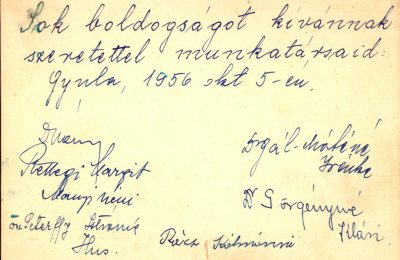 Sok boldogságot kívánnak
szeretettel munkatársaid:
Gyula, 1956 okt 5-én.
Rettegi Margit
Manyi néni
öv. Peterffy Istvánné
Rácz Kálmánné
Dr Gál-Máténé
Irénke
Dr Görgényné